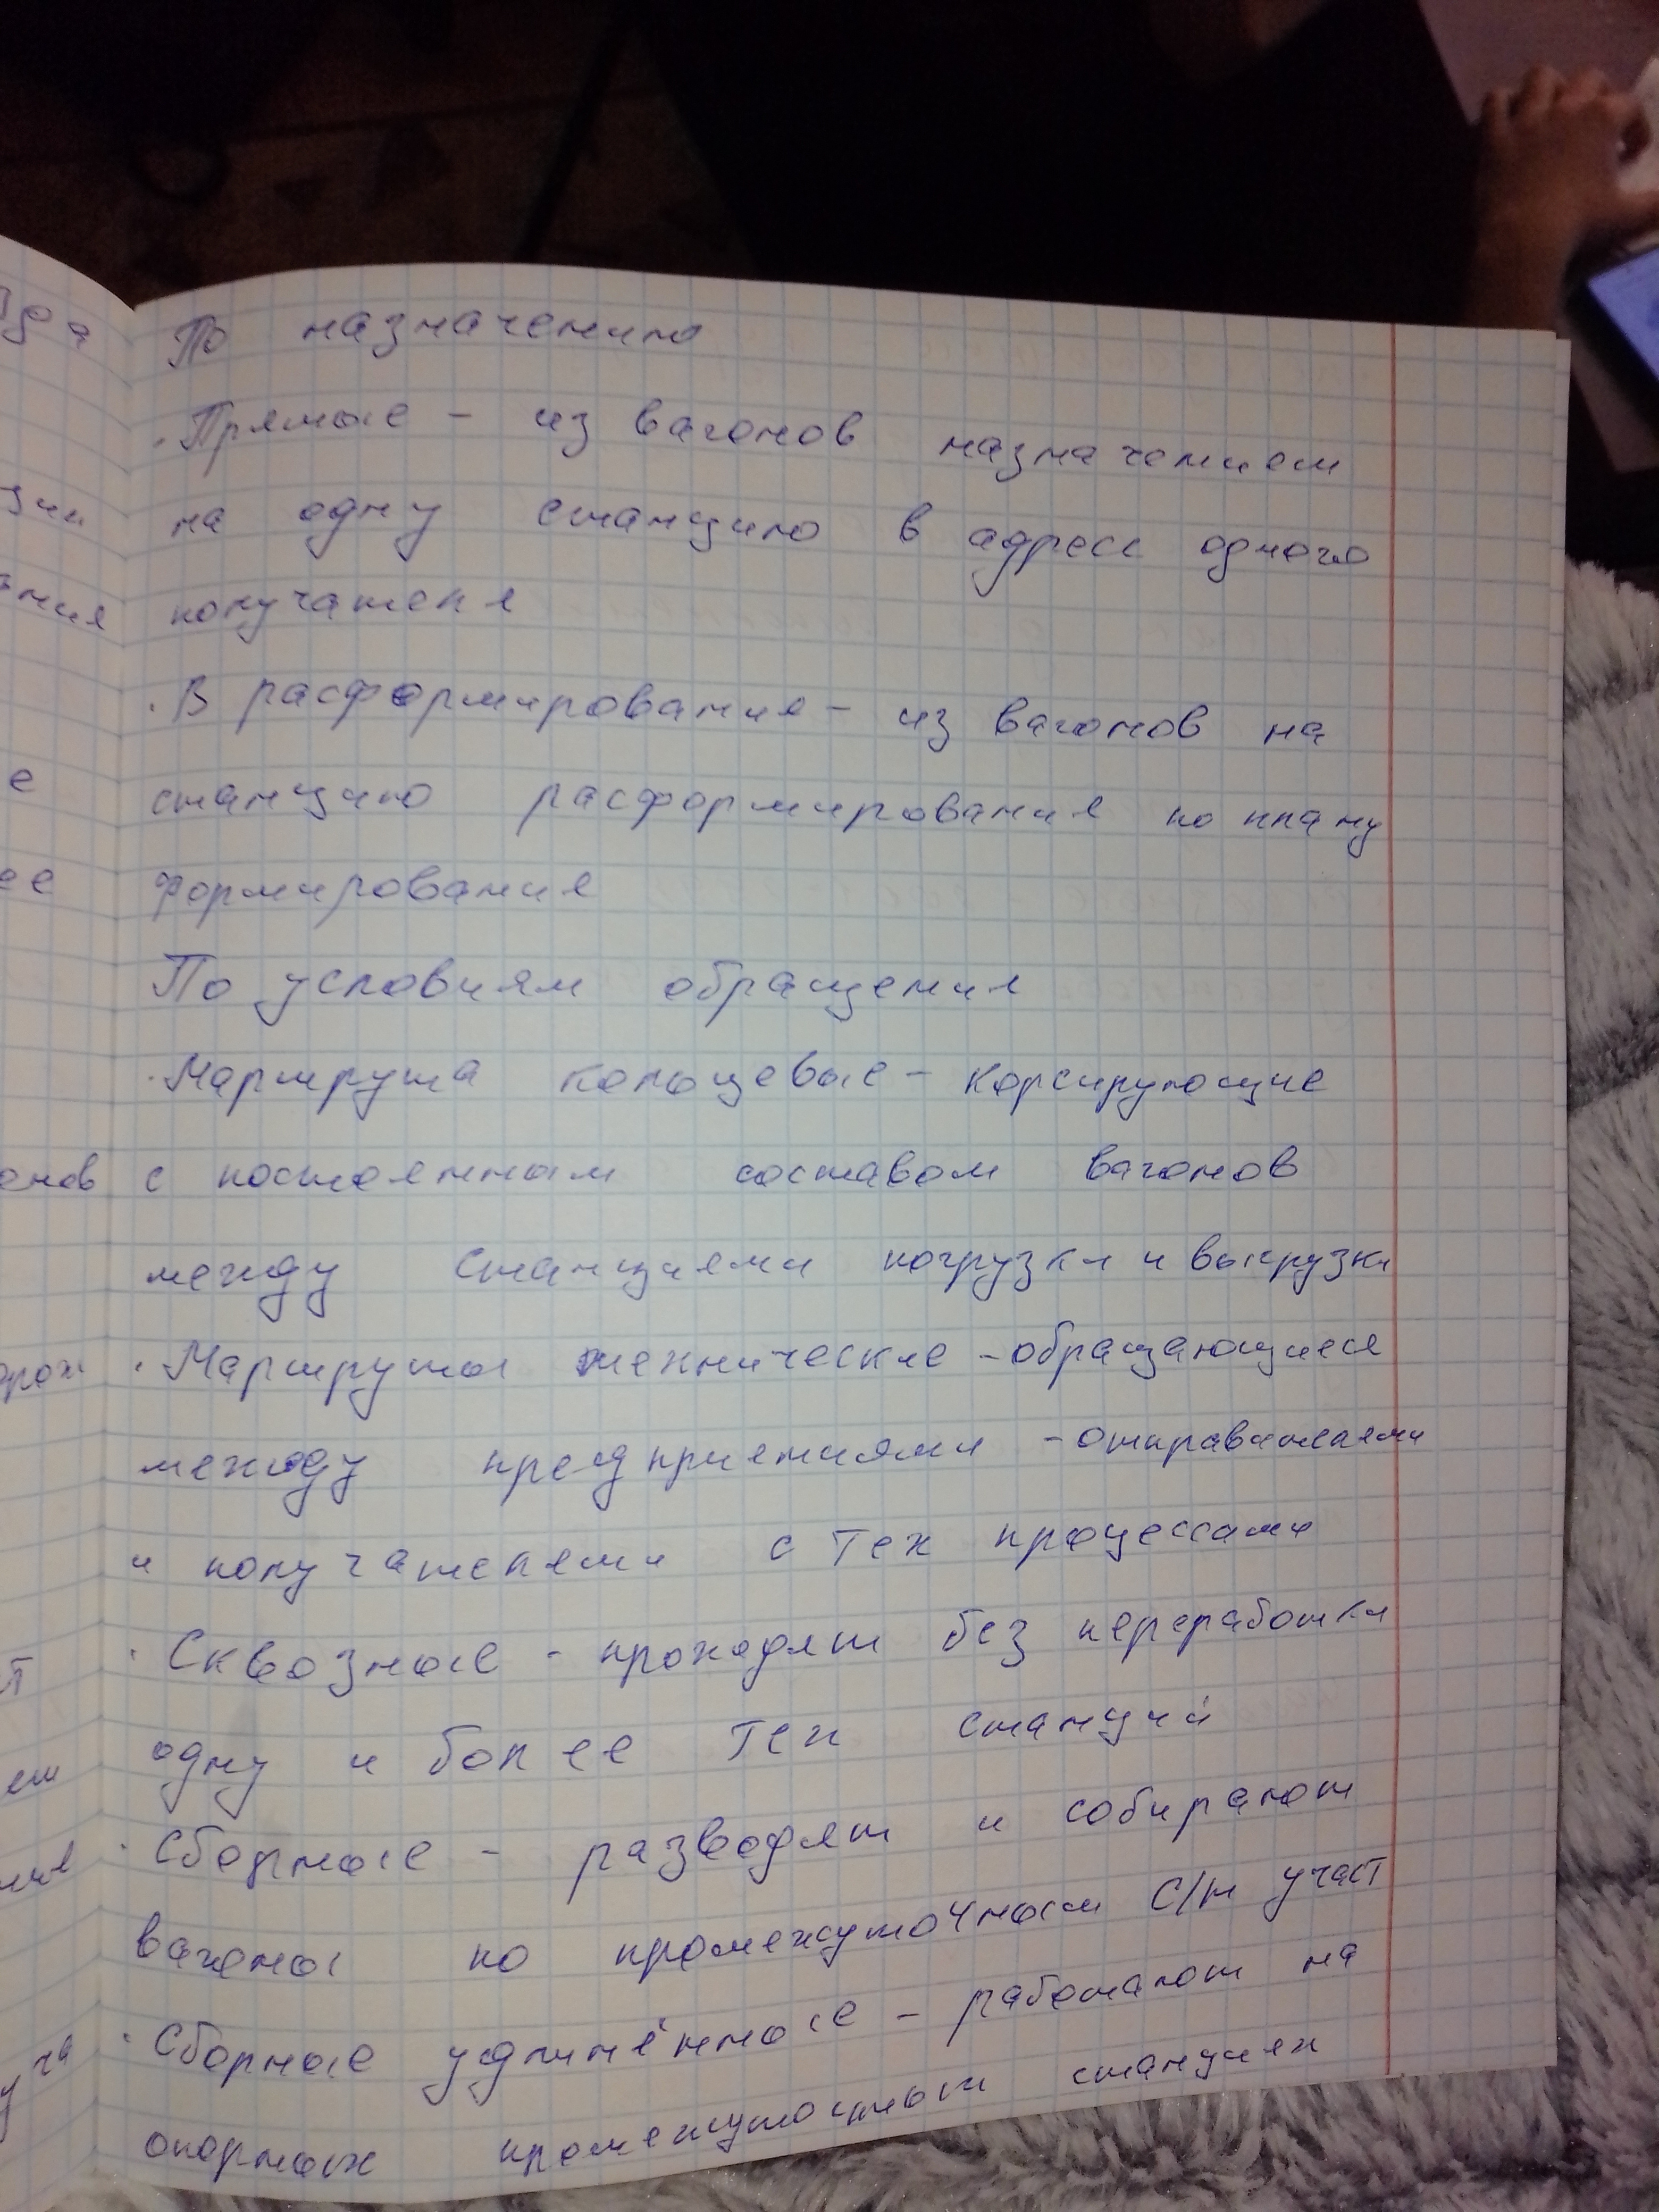 По назначению
· Прямые - из вагонов назначением
на одну станцию в адресс одного
получателя
· В расформирования - из вагонов на
станцию расформирования по плану
формирования
По условиям обращения
· Маршрута кольцевые - корсирующие
с постоянным составом вагонов
между станциями погрузки и выгрузки
· Маршруты технические - обращающиеся
между предприятиями - отправителями
и получателями с тех процессами
· Сквозные - проходят без переработки
одну и более тех станций
· Сборные - разводят и собирают
вагоны по промежуточным с/п участ
· Сборные удлинённые - работают на
опорных промежуточным станциях